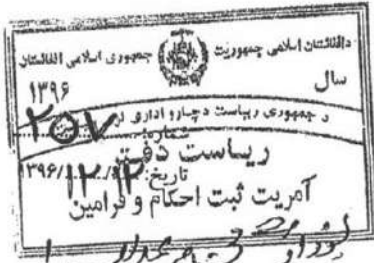 دافغانستان اسلامی جمهوریت جمهوری اسلامی افغانستان
سال
۱۳۹۶
د جمهوری ریاست د چارو اداری
شماره: ۲۵۷
ریاست دفتر
تاریخ: ۱۳۹۶/۱۲/۱۲
آمریت ثبت احکام و فرامین